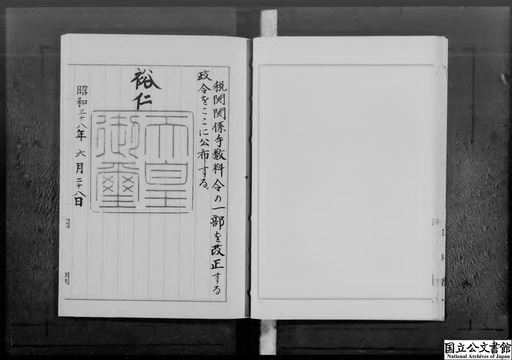 税関関係手数料令の一部を改正する
政令をここに公布する。
裕仁
天皇
御璽
昭和三十八年六月二十八日
国立公文書館
National Archives of Japan